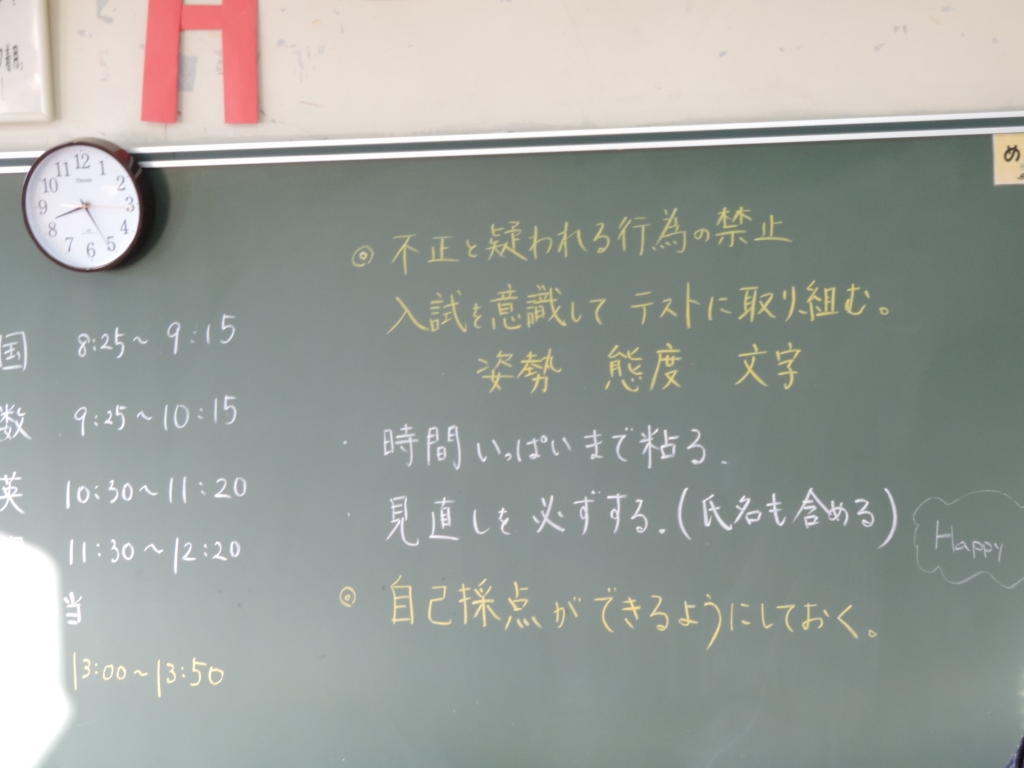 A
め
12
1
2
3
4
5
6
7
8
9
10
11
国 8:25～9:15
数 9:25～10:15
英 10:30～11:20
11:30～12:20
当
13:00～13:50
◎ 不正と疑われる行為の禁止
入試を意識して テストに取り組む。
姿勢 態度 文字
・ 時間いっぱいまで粘る.
・ 見直しを必ずする.(氏名も含める)
◎ 自己採点ができるようにしておく。
Happy